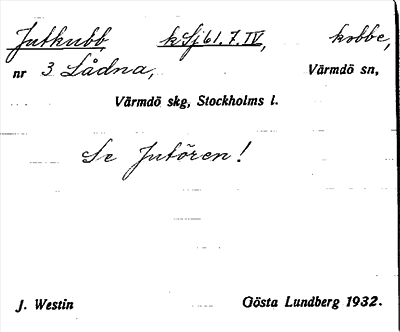 Jutkubb, kSj61.7.IV, kobbe,
nr 3 Lådna, Värmdö sn,
Värmdö skg, Stockholms l.
Se Jutören!
J. Westin Gösta Lundberg 1932.